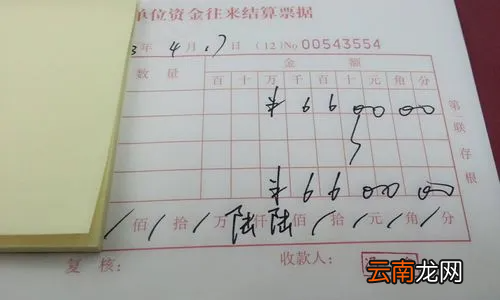 单位资金往来结算票据
3年4月17日 (12)No 00543554
数量 金额
百 十 万 千 百 十 元 角 分
¥ 6 6 0 0 0 0
¥ 6 6 0 0 0 0
/佰/拾/万陆仟陆佰/拾/元/角/分
复核: 收款人:
第一联存根
云南龙网